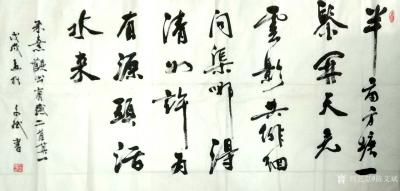 半亩方塘一
鉴开天光
云影共徘徊
问渠哪得
清如许为
有源头活
水来
朱熹观书有感二首其一
戊戌夏于
文斌书